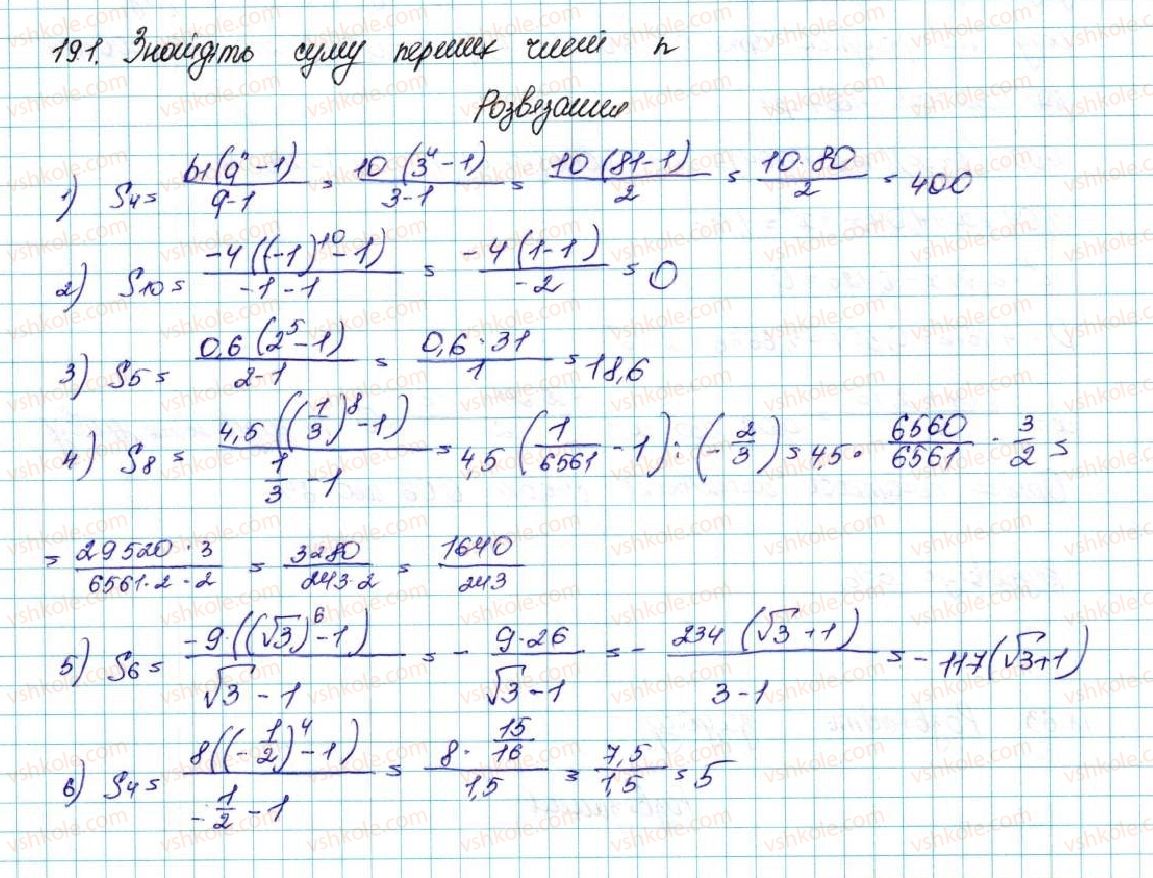 19.1. Знайдіть суму перших членів n
Розвязання
1) S4 = b1(q^n - 1)/(q-1) = 10(3^4 - 1)/(3-1) = 10(81-1)/2 = 10·80/2 = 400
2) S10 = -4((-1)^10 - 1)/(-1-1) = -4(1-1)/(-2) = 0
3) S5 = 0,6(2^5 - 1)/(2-1) = 0,6·31/1 = 18,6
4) S8 = 4,5((1/3)^8 - 1)/(1/3 - 1) = 4,5(1/6561 - 1):(-2/3) = 4,5·6560/6561·3/2 =
= 29520·3/(6561·2·2) = 3280/(243·2) = 1640/243
5) S6 = -9·((√3)^6 - 1)/(√3 - 1) = - 9·26/(√3 - 1) = - 234(√3+1)/(3-1) = -117(√3+1)
6) S4 = 8((-1/2)^4 - 1)/(-1/2 - 1) = 8·15/16/1,5 = 7,5/1,5 = 5
vshkole.com